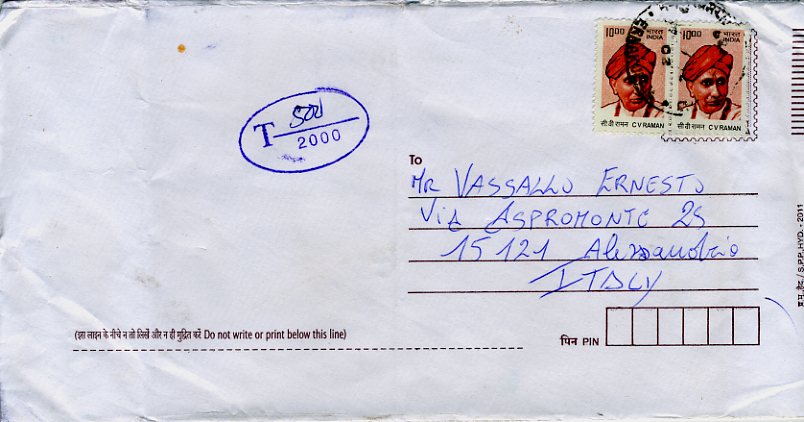 1000 भारत INDIA
सी वी रामन C V RAMAN
1000 भारत INDIA
सी वी रामन C V RAMAN
T 500
2000
To
MR VASSALLO ERNESTO
VIA ASPROMONTE 25
15121 Alessandria
ITALY
(इस लाइन के नीचे न तो लिखें और न ही मुद्रित करें Do not write or print below this line)
पिन PIN
S.P.P. HYD. - 2011